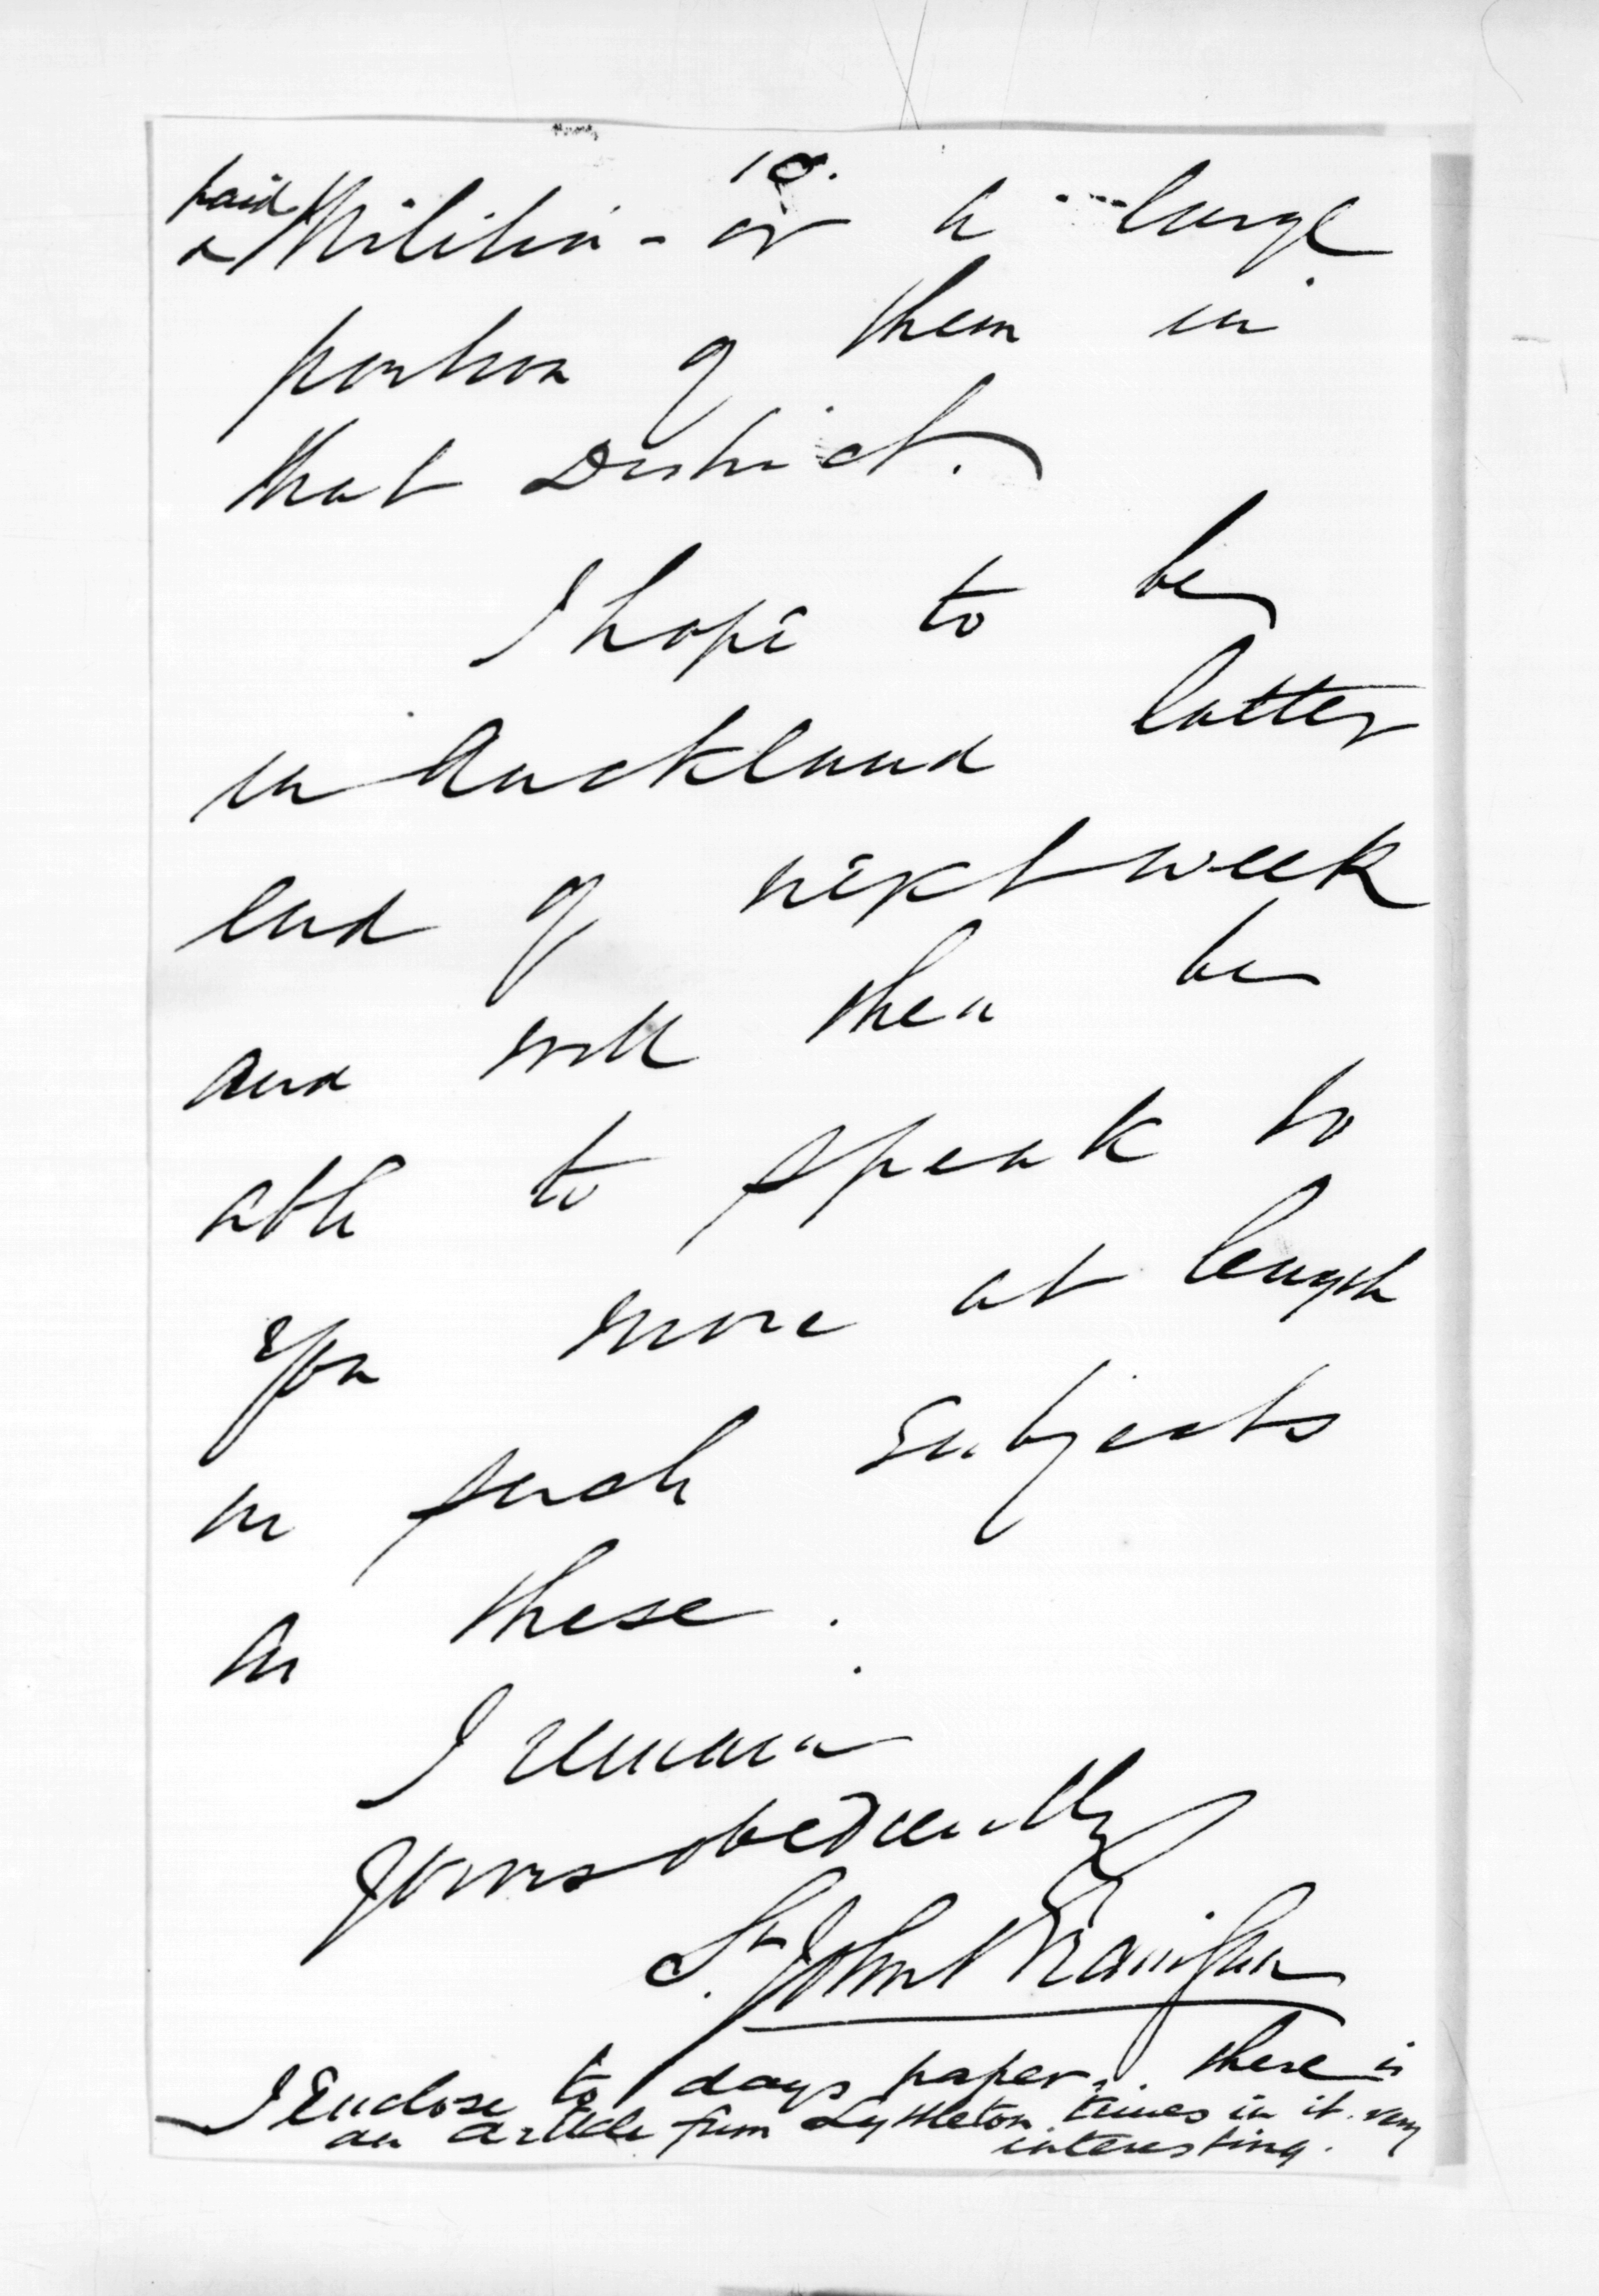 10.
a paid Militia - or a large
portion of them in
that District.
I hope to be
in Auckland latter
end of next week
and will then be
able to speak to
you more at length
on such subjects
as these.
I remain
yours obediently
St. John Branigan
I Enclose to days paper, there is
an article from Lyttleton times in it very
interesting.